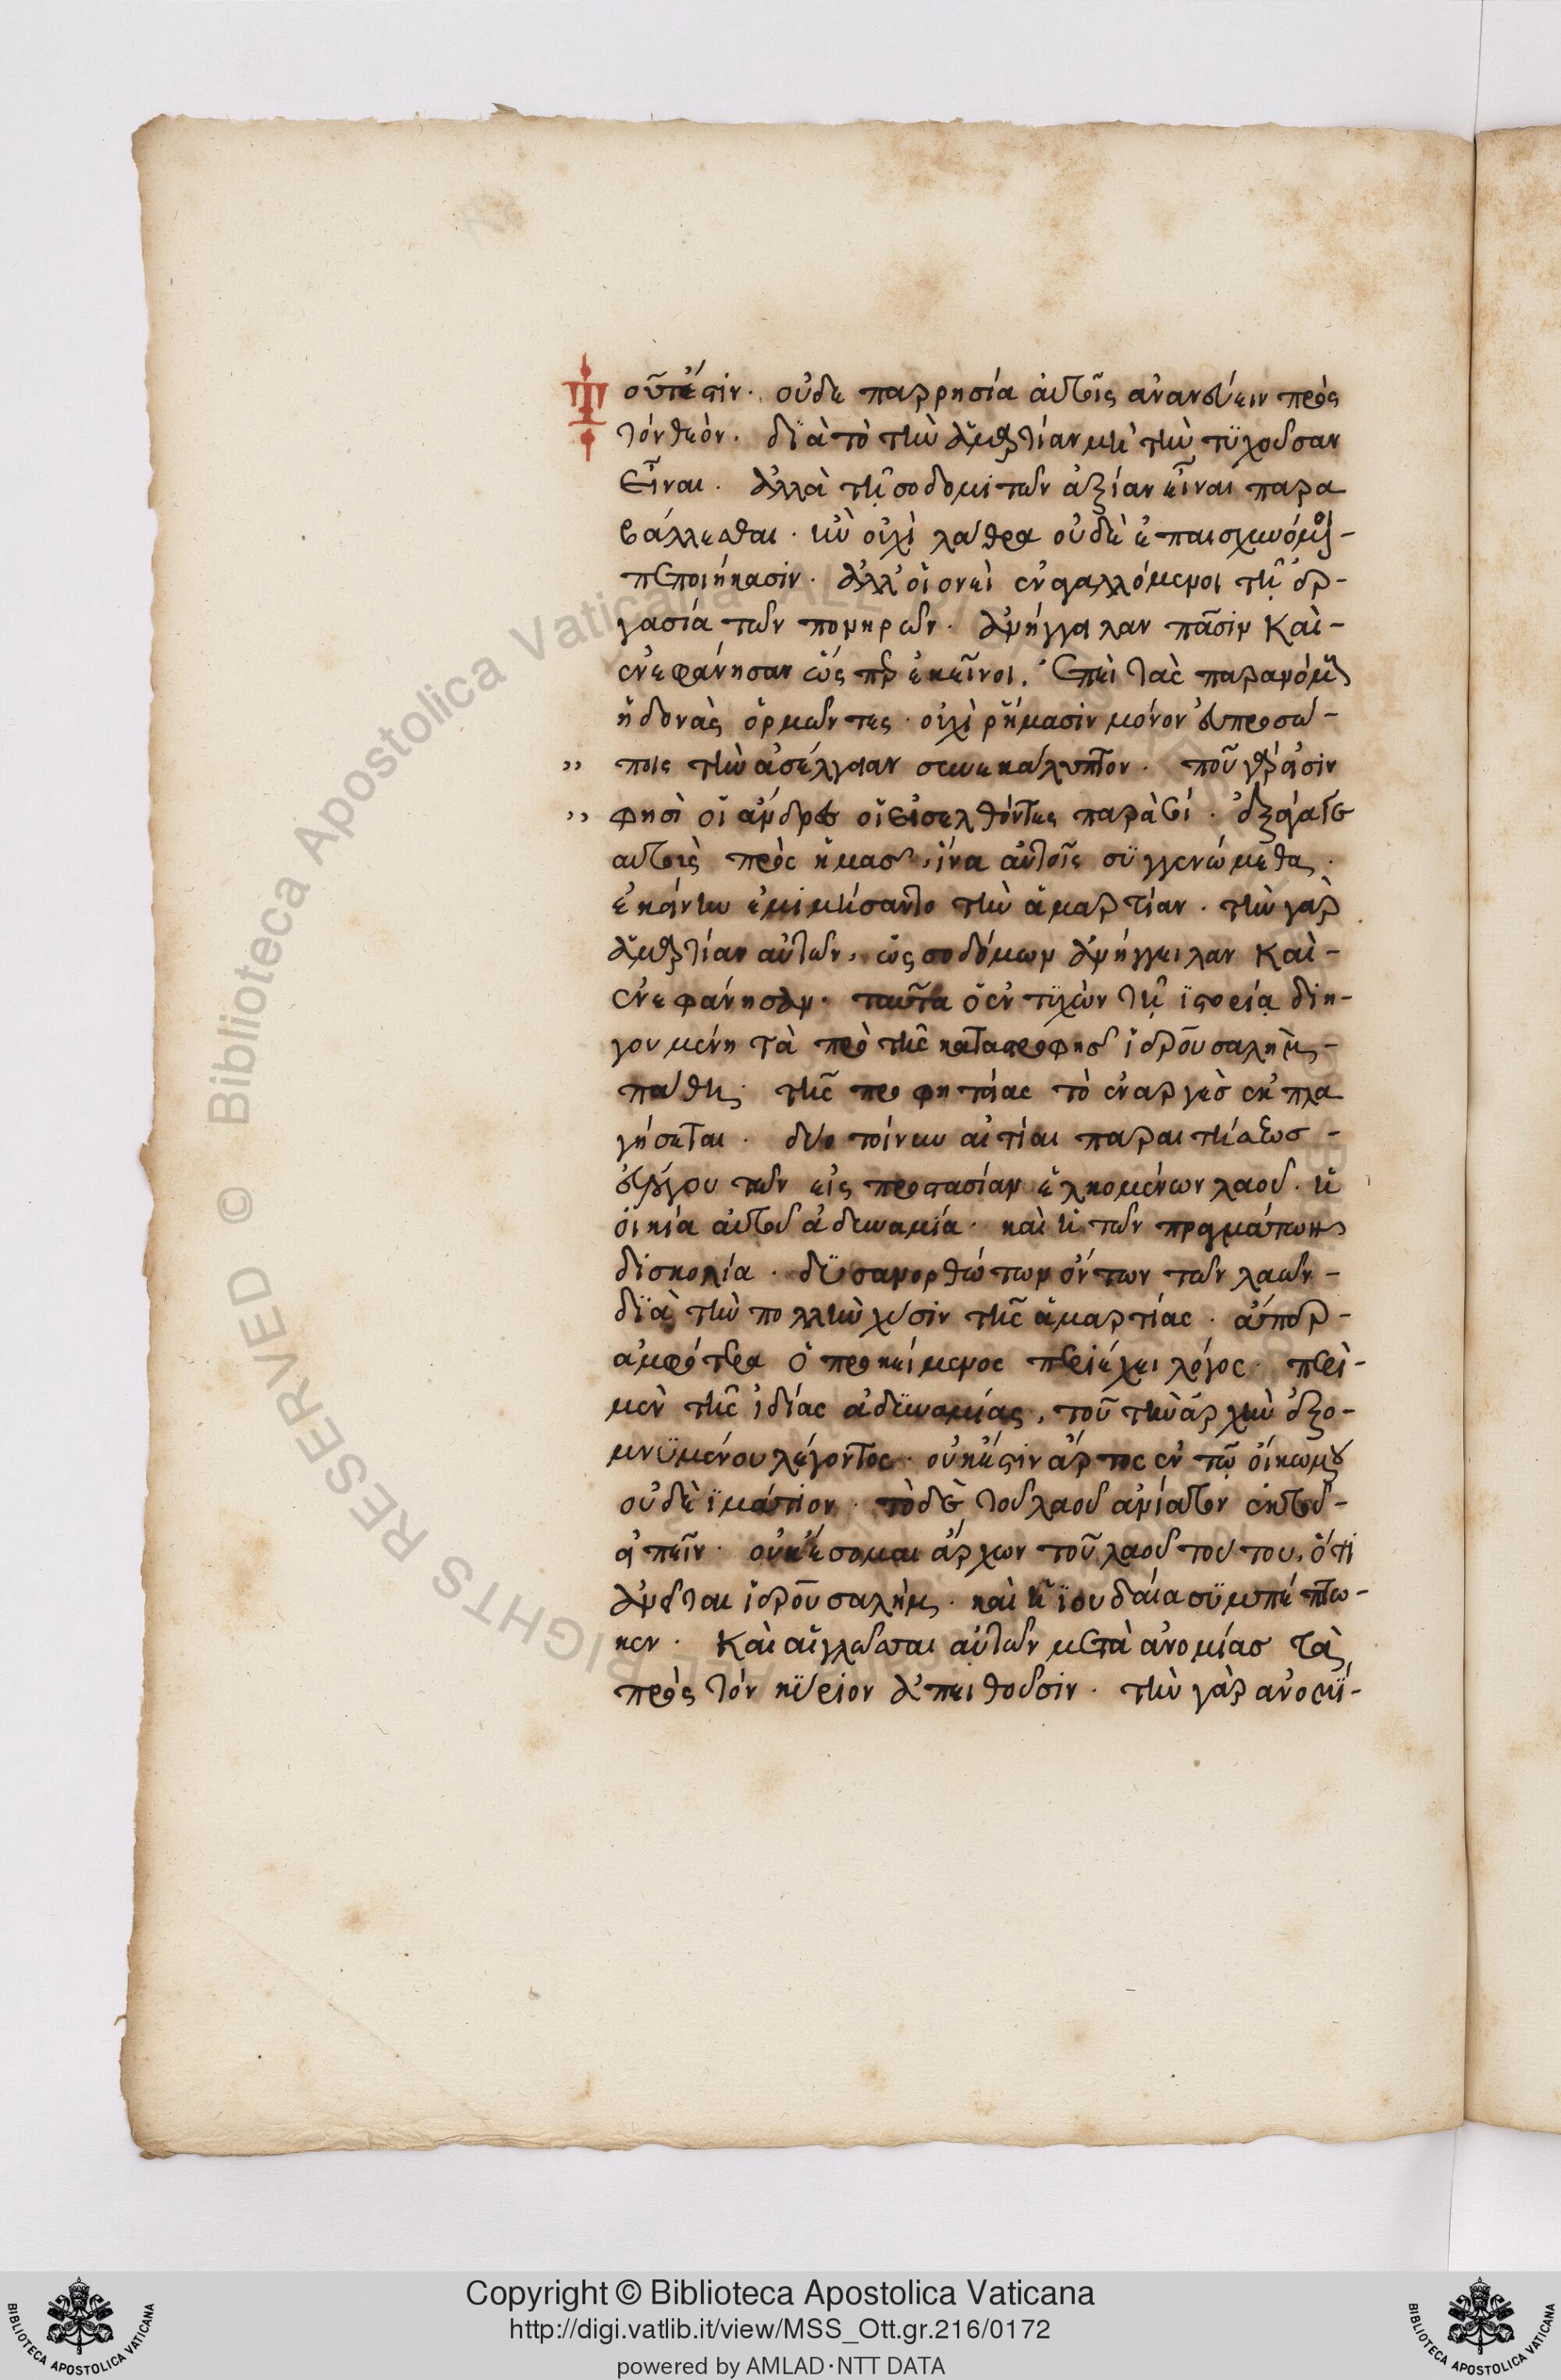 Τουτέστιν· οὐδὲ παρρησία αὐτοῖς ἀνανεύειν πρὸς
τὸν θεόν. διὰ τὸ τὴν ἁμαρτίαν μὴ τὴν τυχοῦσαν
εἶναι. ἀλλὰ τῇ σοδομιτῶν ἀξίαν εἶναι παρα
βάλλεσθαι· ἣν οὐχὶ λάθρα οὐδὲ ἐπαισχυνόμενοι-
πεποιήκασιν. ἀλλ' οἱονεὶ ἐναγαλλόμενοι τῇ ἐρ-
γασία τῶν πονηρῶν. ἀνήγγειλαν πᾶσιν καὶ-
ἐνεφάνησαν ὥσπερ ἐκεῖνοι. ἐπὶ τὰς παρανόμους
ἡδονὰς ὁρμῶντες· οὐχὶ ῥήμασιν μόνον εὐπροσώ-
ποις τὴν ἀσέλγειαν συνεκάλυπτον. ποῦ γάρ εἰσιν
φησὶ οἱ ἄνδρες οἱ εἰσελθόντες παρὰ σέ. ἐξάγαγε
αὐτοὺς πρὸς ἡμᾶς, ἵνα αὐτοῖς συγγενώμεθα.
ἐκείνην ἐμιμήσαντο τὴν ἁμαρτίαν. τὴν γὰρ
ἁμαρτίαν αὐτῶν, ὡς σοδόμων ἀνήγγειλαν καὶ-
ἐνεφάνησαν. ταῦτα ὁ ἐντυχὼν τῇ ἱστορίᾳ διη-
γουμένη τὰ πρὸ τῆς καταστροφῆς ἱερουσαλὴμ-
πάθη. τῆς προφητείας τὸ ἐναργὲς ἐκπλα
γήσεται. δύο τοίνυν αἰτίαι παραιτήσεως-
ἔργου τῶν εἰς προστασίαν ἑλκομένων λαοῦ. ἡ
οἰκία αὐτοῦ ἀδυναμία. καὶ ἡ τῶν πραγμάτων
δισκολία. δυσανορθώτων ὄντων τῶν λαῶν-
διὰ τὴν πολλὴν χύσιν τῆς ἁμαρτίας. ἅπερ-
ἀμφότερα ὁ προκείμενος περιέχει λόγος. περὶ-
μὲν τῆς ἰδίας ἀδυναμίας, τοῦ τὴν ἀρχὴν ἐξο-
μνυμένου λέγοντος. οὐκ ἔστιν ἄρτος ἐν τῷ οἴκω μου
οὐδὲ ἱμάτιον. τὸ δὲ τοῦ λαοῦ ἀνίατον ἐκ τοῦ-
εἰπεῖν. οὐκ ἔσομαι ἄρχων τοῦ λαοῦ τούτου, ὅτι
ἀνεῖται ἱερουσαλήμ. καὶ ἡ ἰουδαία συμπέπτω-
κεν. Καὶ αἱ γλῶσσαι αὐτῶν μετὰ ἀνομίας τὰ
πρὸς τὸν κύριον ἀπειθοῦσιν. τὴν γὰρ ἀνορύ-
Copyright © Biblioteca Apostolica Vaticana
http://digi.vatlib.it/view/MSS_Ott.gr.216/0172
powered by AMLAD·NTT DATA